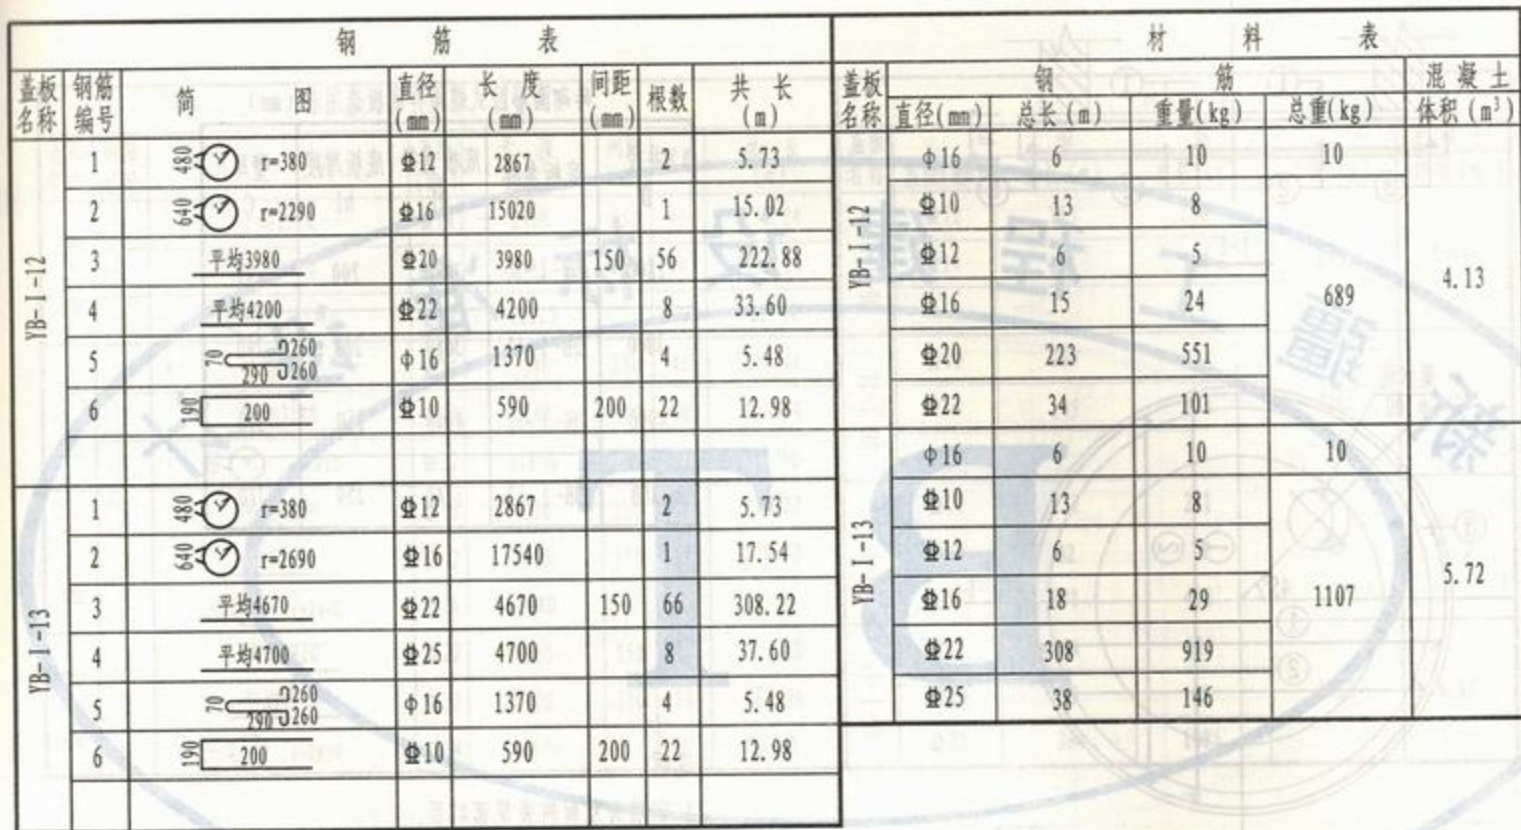 钢 筋 表
盖板名称 钢筋编号 简 图 直径(mm) 长 度(mm) 间距(mm) 根数 共 长(m)
YB-I-12
1 480 r=380 Φ12 2867 2 5.73
2 640 r=2290 Φ16 15020 1 15.02
3 平均3980 Φ20 3980 150 56 222.88
4 平均4200 Φ22 4200 8 33.60
5 70 290 260 260 ϕ16 1370 4 5.48
6 190 200 Φ10 590 200 22 12.98
YB-I-13
1 480 r=380 Φ12 2867 2 5.73
2 640 r=2690 Φ16 17540 1 17.54
3 平均4670 Φ22 4670 150 66 308.22
4 平均4700 Φ25 4700 8 37.60
5 70 290 260 260 ϕ16 1370 4 5.48
6 190 200 Φ10 590 200 22 12.98
材 料 表
盖板名称 钢 筋 混凝土
直径(mm) 总长(m) 重量(kg) 总重(kg) 体积(m³)
YB-I-12
ϕ16 6 10 10
Φ10 13 8
Φ12 6 5
Φ16 15 24
689 4.13
Φ20 223 551
Φ22 34 101
YB-I-13
ϕ16 6 10 10
Φ10 13 8
Φ12 6 5
Φ16 18 29
1107 5.72
Φ22 308 919
Φ25 38 146
新疆工程建设标准